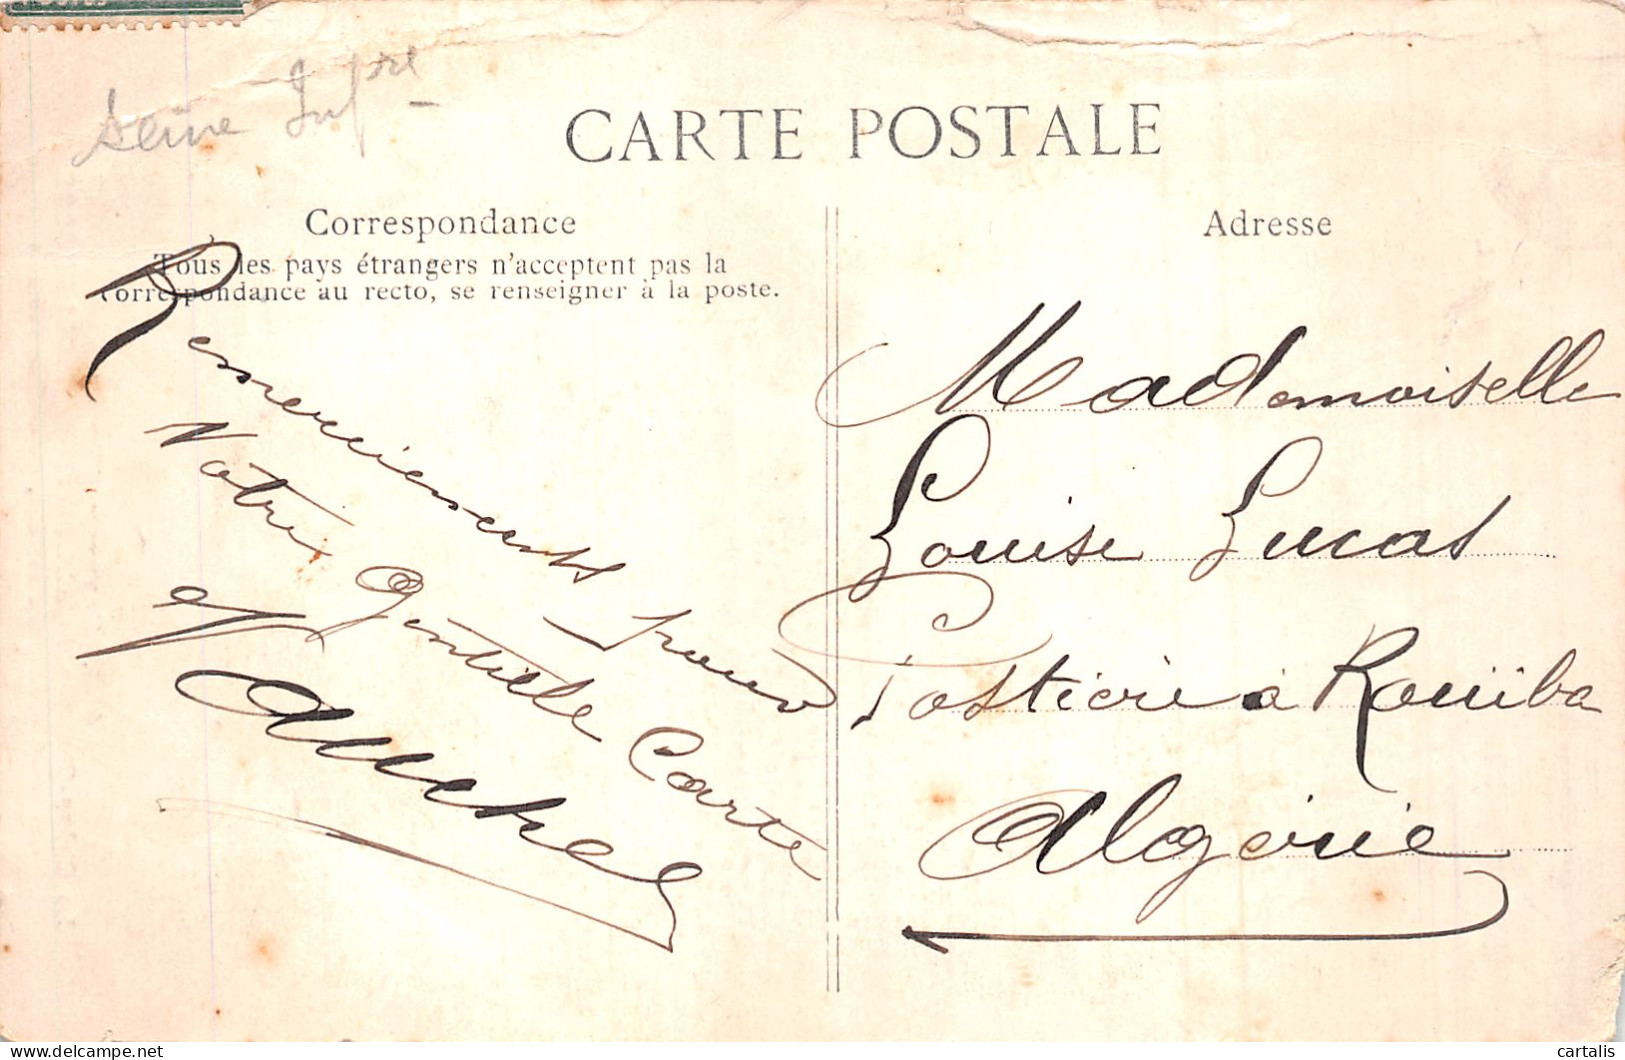 Seine Infre
CARTE POSTALE
Correspondance
Tous les pays étrangers n'acceptent pas la
correspondance au recto, se renseigner à la poste.
Remerciements pour
Votre Gentille Carte
Adresse
Mademoiselle
Louise Lucas
Postière à Rouïba
Algérie
cartalis